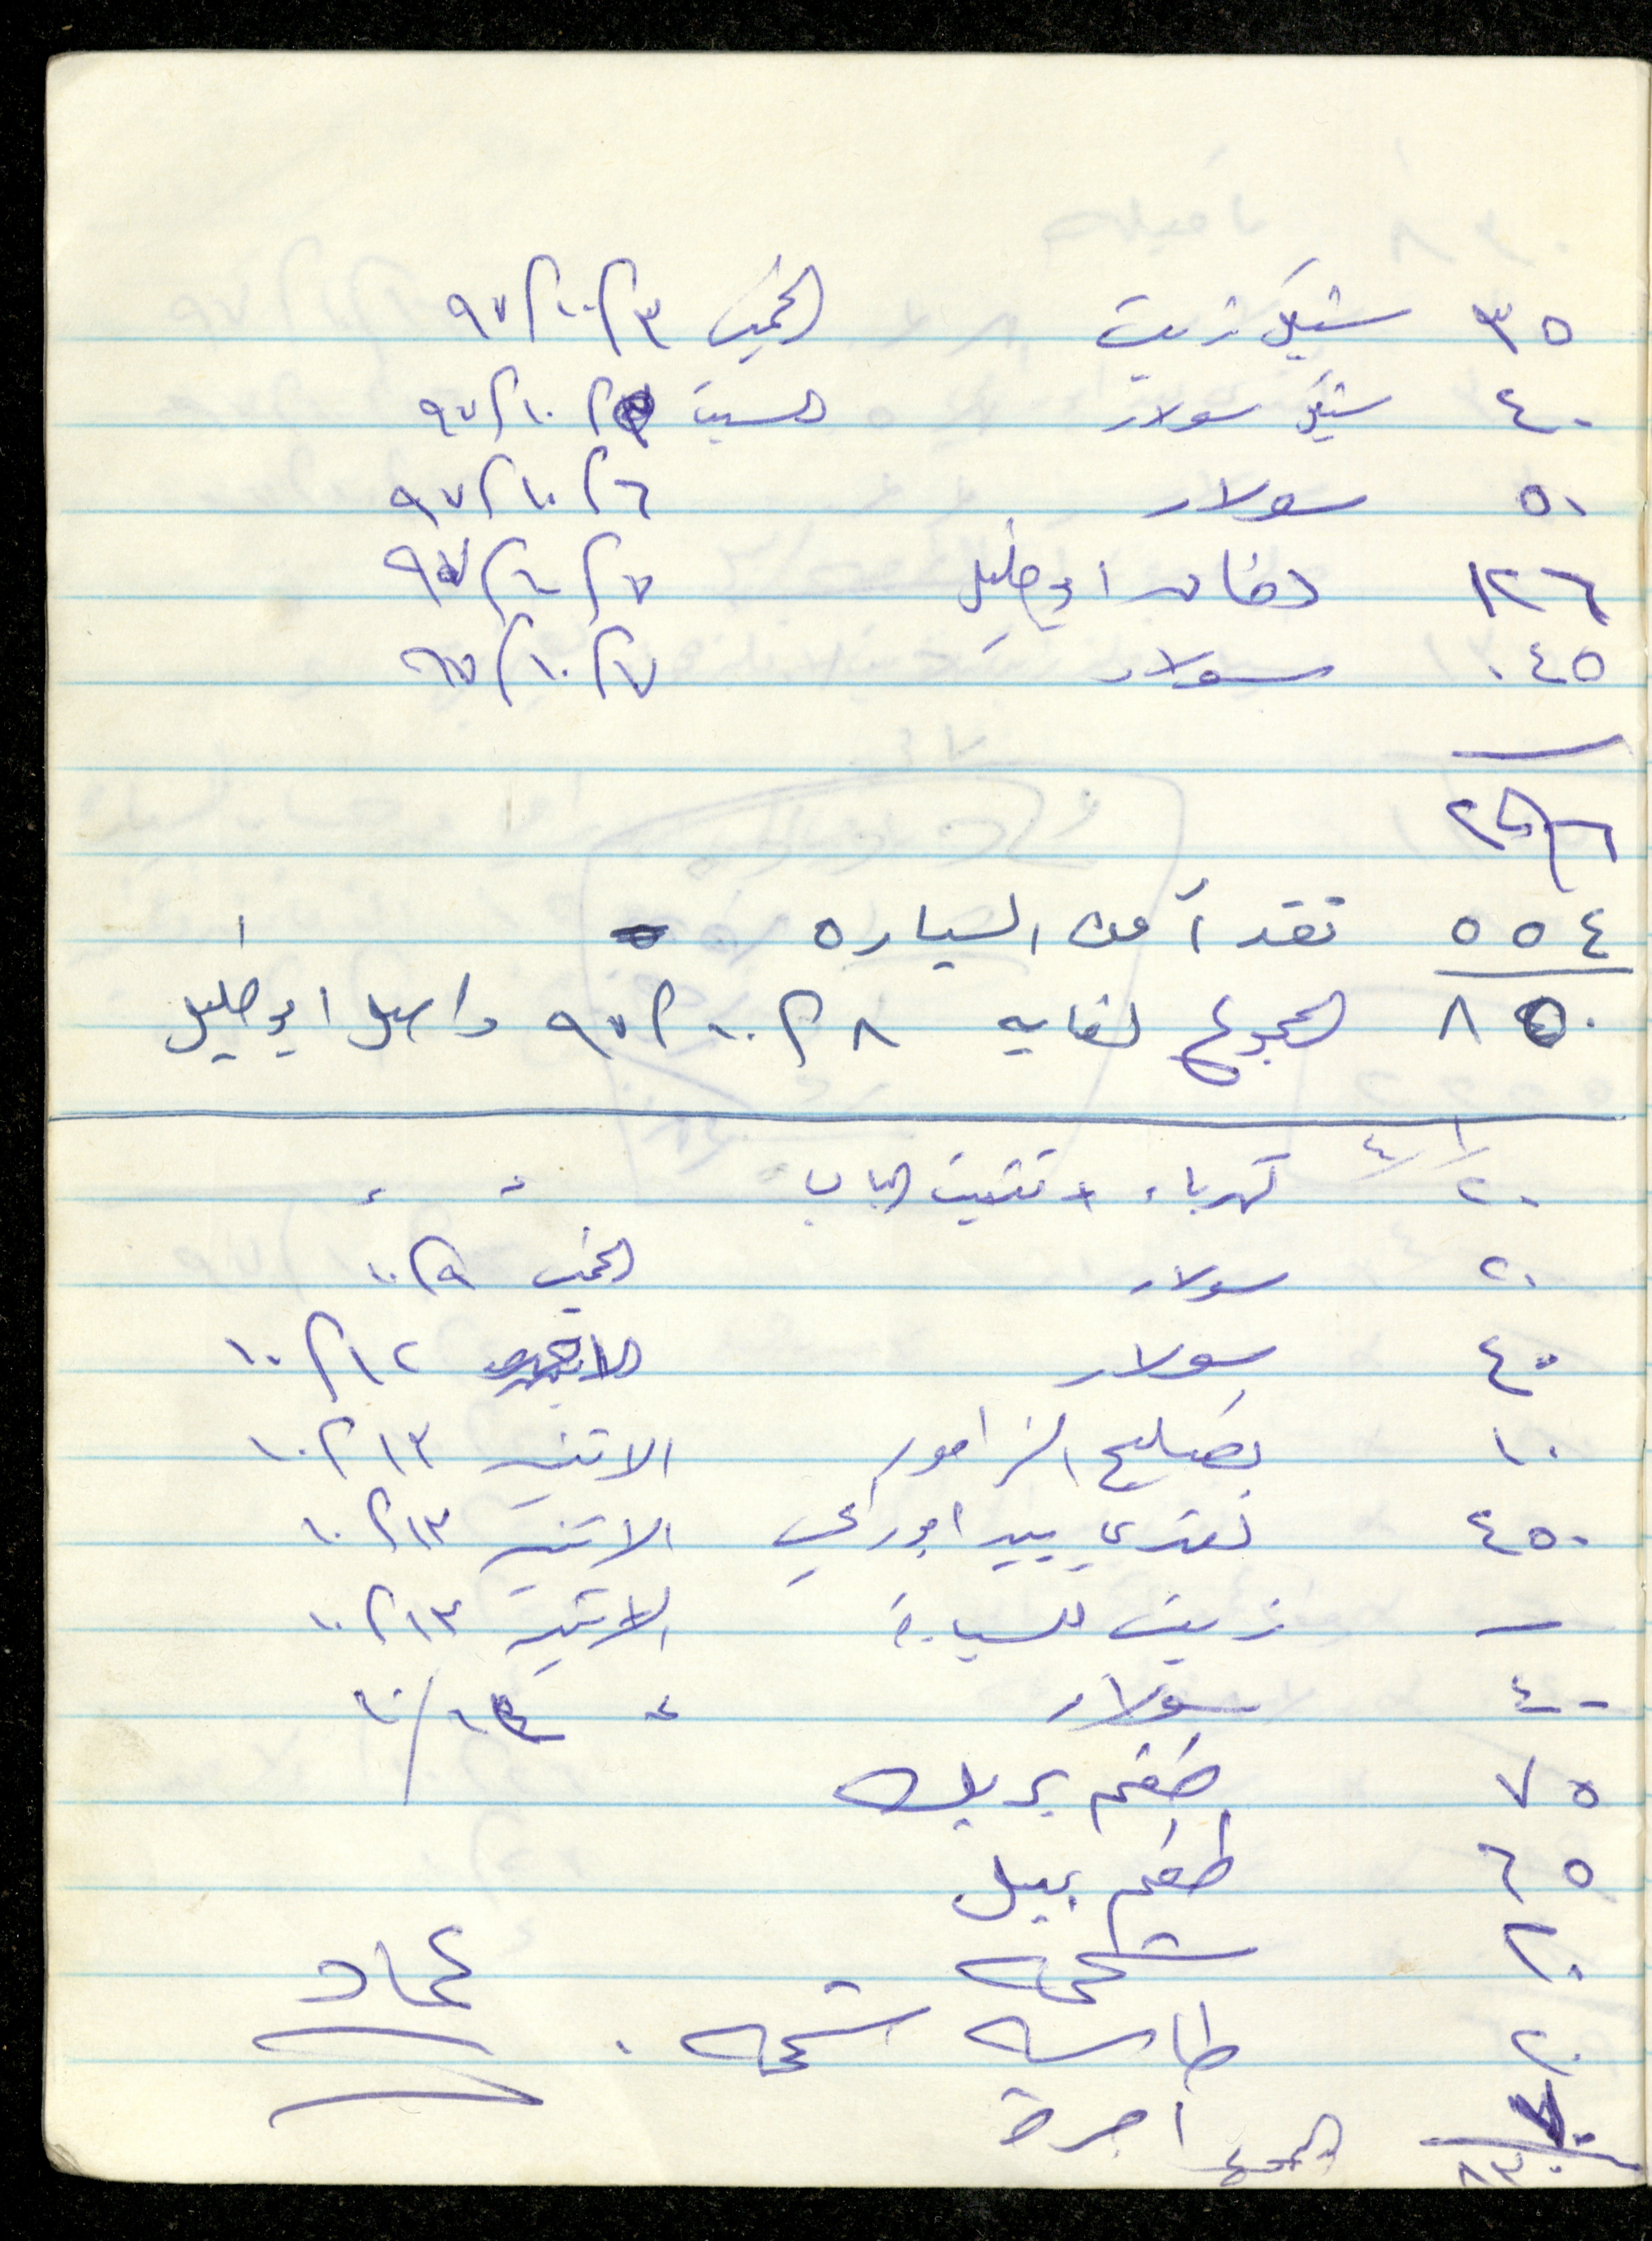 ٣٥ شيكل زيت الخميس ٩٧/١٠/٣
٤٠ شيكل سولار السبت /١٠/٩٧
٥٠ سولار ٦/١٠/٩٧
١٢٦ دخان ابو خليل ٧/١٠/٩٧
٤٥ سولار ٧/١٠/٩٧
٢٩٦
٥٥٤ نقداً من السياره
٨٥٠ المجموع لغايه ٨/١٠/٩٧ واصل ابو خليل
٢٠ كهرباء + تثبيت الباب
٢٠ سولار الخميس ٩/١٠
٤٠ سولار الاحد ١٢/١٠
١٠ تصليح الزامور الاثنين ١٣/١٠
٤٥٠ نقدي بيد ابو رامي الاثنين ١٣/١٠
— زيت للسيارة الاثنين ١٣/١٠
٤٠ سولار ١٤/١٠
٧٥ طقم بريك
٦٥ طقم بيل
٢٠ شحمه
٢٠ طاسه شحمه . عماد
٧٠ اجرة
٨٣٠ المجموع